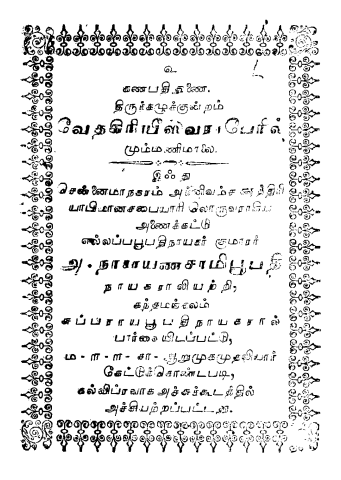 உ
கணபதி துணை.
திருக்கழுக்குன்றம்
வேதகிரியீஸ்வரர்பேரில்
மும்மணிமாலை.
இஃது
சென்னைமாநகரம் அக்னிவம்ச க்ஷத்திரி
யாபிமானசபையாரி லொருவராகிய
அணைக்கட்டு
எல்லப்பபூபதிநாயகர் குமாரர்
அ. நாராயணசாமிபூபதி
நாயகராலியற்றி,
கந்தமங்கலம்
சுப்பராயபூபதிநாயகரால்
பார்வையிடப்பட்டு,
ம-ா-ா-சா- ஆறுமுகமுதலியார்
கேட்டுக்கொண்டபடி,
கல்விப்ரவாகஅச்சுக்கூடத்தில்
அச்சியற்றப்பட்டன.